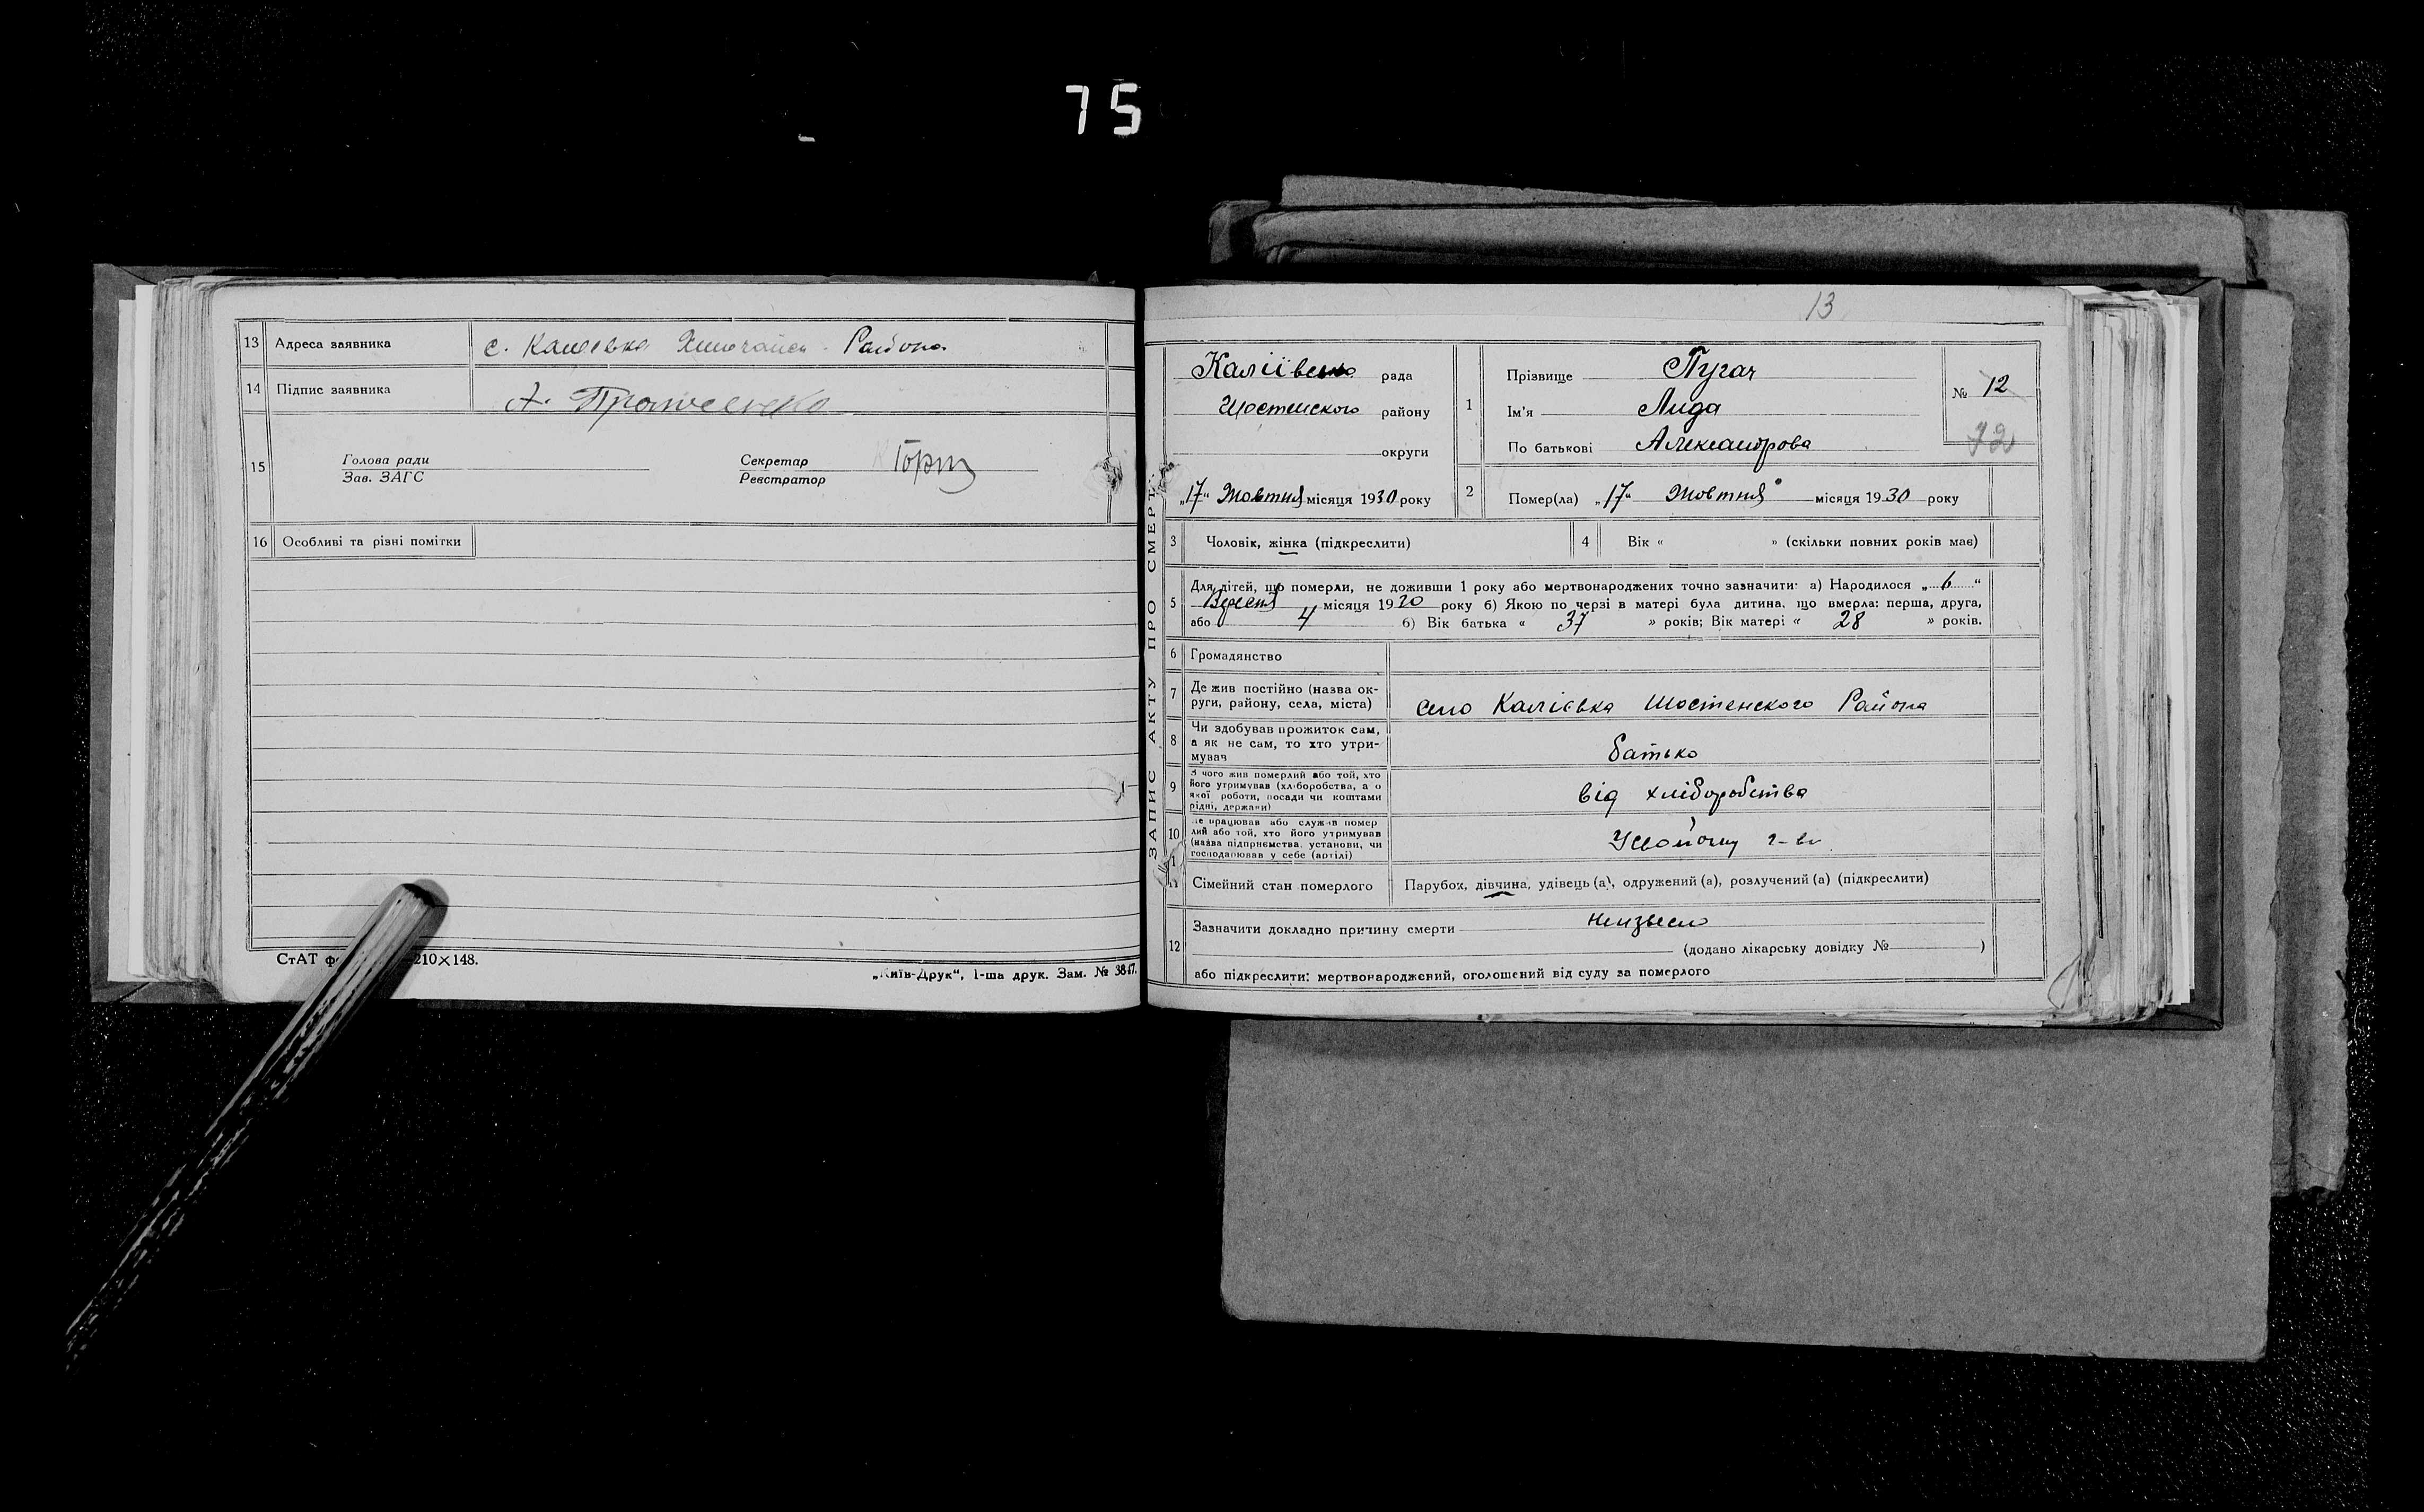 75
13 Адреса заявника с. Района
14 Підпис заявника А.
15 Голова ради
Зав. ЗАГС
Секретар
Реєстратор
16 Особливі та різні помітки
210×148.
„Київ-Друк“, 1-ша друк. Зам. № 3847.
13
ЗАПИС АКТУ ПРО СМЕРТЬ
рада
Шостенского району
округи
„17“ Жовтня місяця 1930 року
1 Прізвище Пугач
Ім'я Лида
По батькові Александрова
№ 12
72
2 Помер(ла) „17“ Жовтня місяця 1930 року
3 Чоловік, жінка (підкреслити)
4 Вік « » (скільки повних років має)
5 Для дітей, що померли, не доживши 1 року або мертвонароджених точно зазначити: а) Народилося „ 6 “
Вересня місяця 19 року б) Якою по черзі в матері була дитина, що вмерла: перша, друга,
або 4 б) Вік батька « 37 » років; Вік матері « 28 » років.
6 Громадянство
7 Де жив постійно (назва ок-
руги, району, села, міста)
село Калієвка Шостенского Района
8 Чи здобував прожиток сам,
а як не сам, то хто утри-
мував
батько
9 З чого жив померлий або той, хто
його утримував (хліборобства, а о
якої роботи, посади чи коштами
рідні, держави)
від хліборобства
10 Де працював або служив помер
лий або той, хто його утримував
(назва підприємства, установи, чи
господарював у себе (артілі)
У свойому г-ві
11 Сімейний стан померлого Парубок, дівчина, удівець (а), одружений (а), розлучений (а) (підкреслити)
12 Зазначити докладно причину смерти
(додано лікарську довідку № )
або підкреслити: мертвонароджений, оголошений від суду за померлого